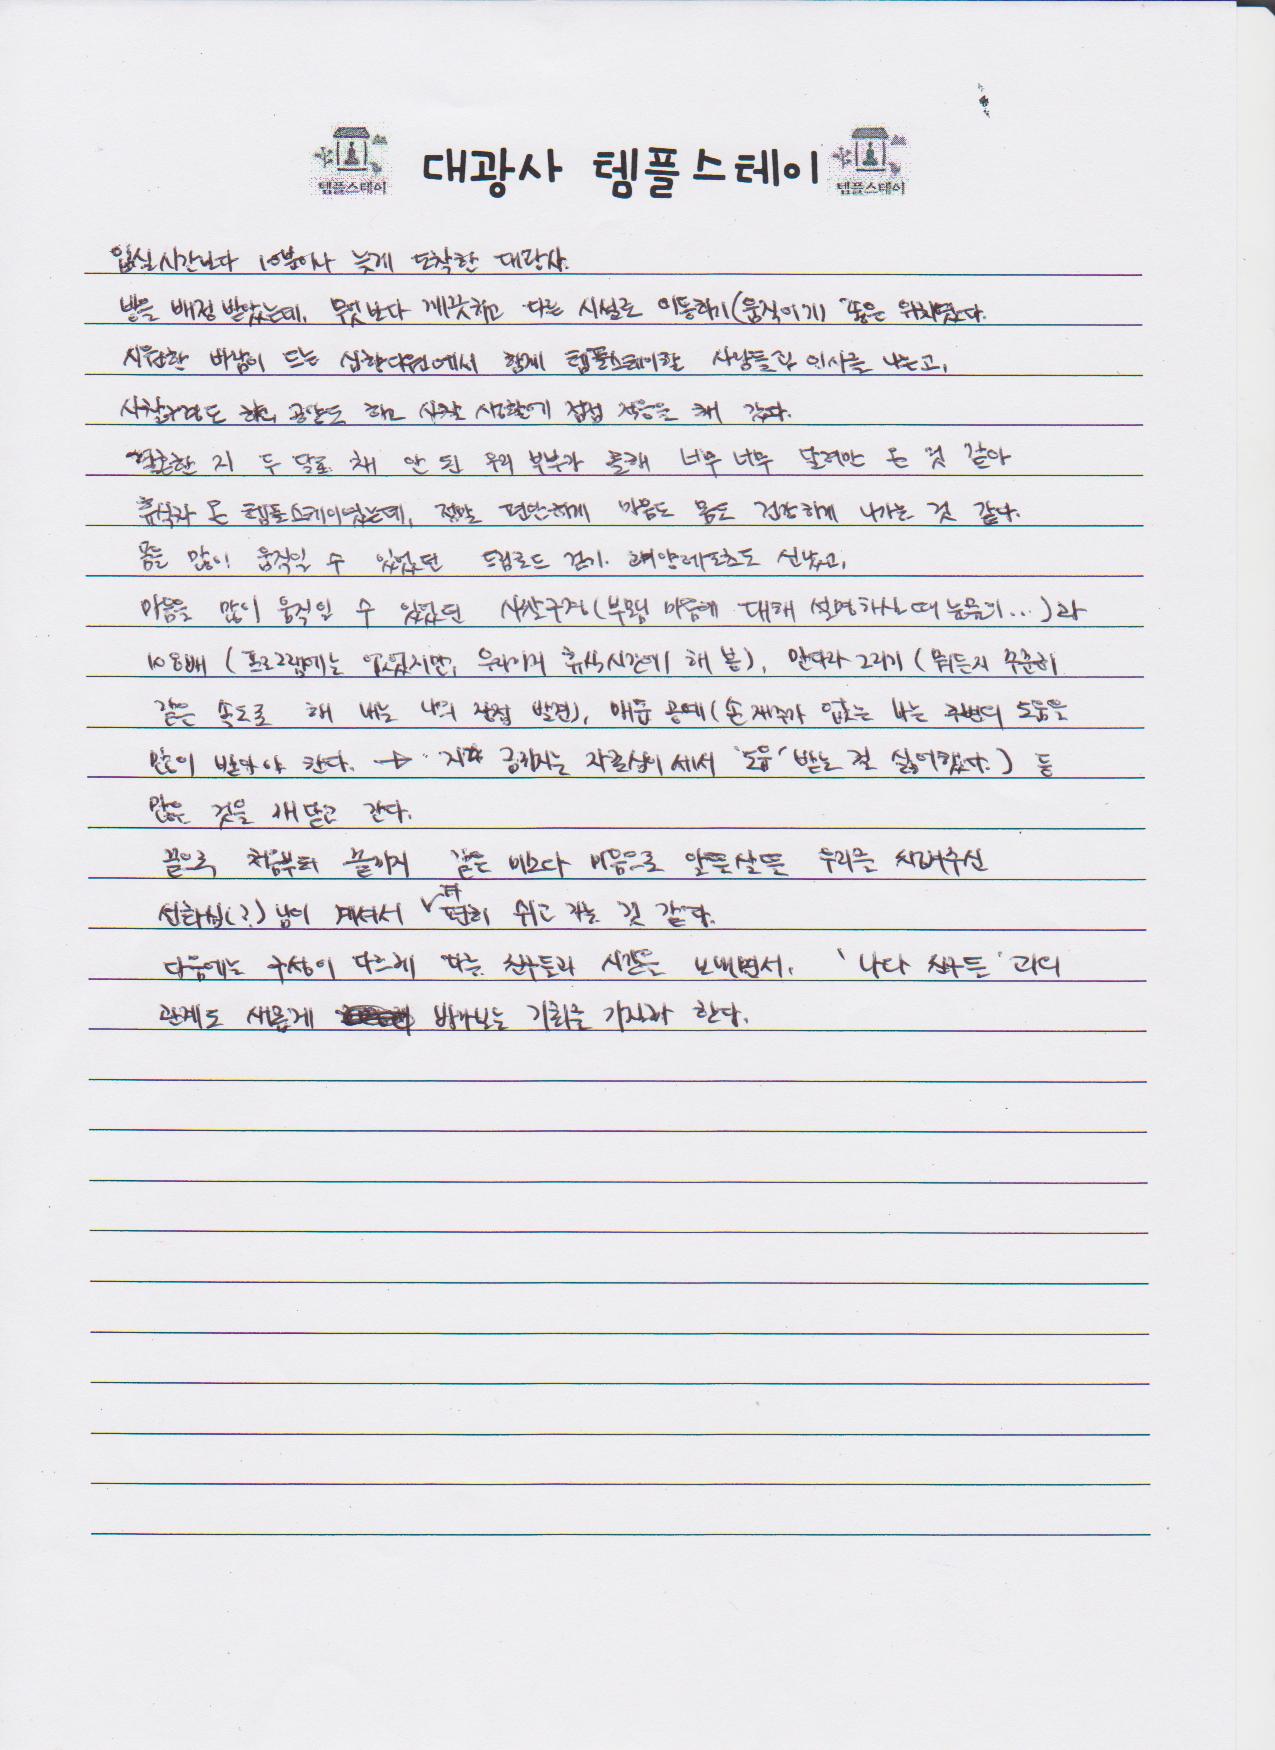 템플스테이
대광사 템플스테이
템플스테이
입실시간보다 10분이나 늦게 도착한 대광사.
방을 배정 받았는데, 무엇보다 깨끗하고 다른 시설로 이동하기(움직이기) 좋은 위치였다.
시원한 바람이 드는 에서 함께 템플스테이할 사람들과 인사를 나누고,
사찰구경도 하고, 공양도 하고 사찰 생활에 점점 적응을 해 갔다.
결혼한 지 두 달도 채 안 된 우리 부부가 올해 너무 너무 달려만 온 것 같아
휴식차 온 템플스테이였는데, 정말 편안하게 마음도 몸도 건강하게 나가는 것 같다.
몸을 많이 움직일 수 있었던 드림로드 걷기. 도 신났고,
마음을 많이 움직일 수 있었던 사찰구경(부모님 마음에 대해 설명하실 때 눈물이...)과
108배 (프로그램에는 없었지만, 우리끼리 휴식시간에 해 봄), 만다라 그리기 (뭐든지 꾸준히
같은 속도로 해 내는 나의 장점 발견), 매듭 공예(손재주가 없는 나는 주변의 도움을
많이 받아야 한다. → 지금까지는 자존심이 세서 '도움' 받는 걸 싫어했다.) 등
많은 것을 깨닫고 간다.
끝으로 처음부터 끝까지 같은 미소와 마음으로 알뜰살뜰 우리를 챙겨주신
님이 계셔서 더 편히 쉬고 가는 것 같다.
다음에는 구성이 다르게 친구들과 시간을 보내면서, '나와 친구들'과의
관계도 새롭게 기회를 가지려 한다.